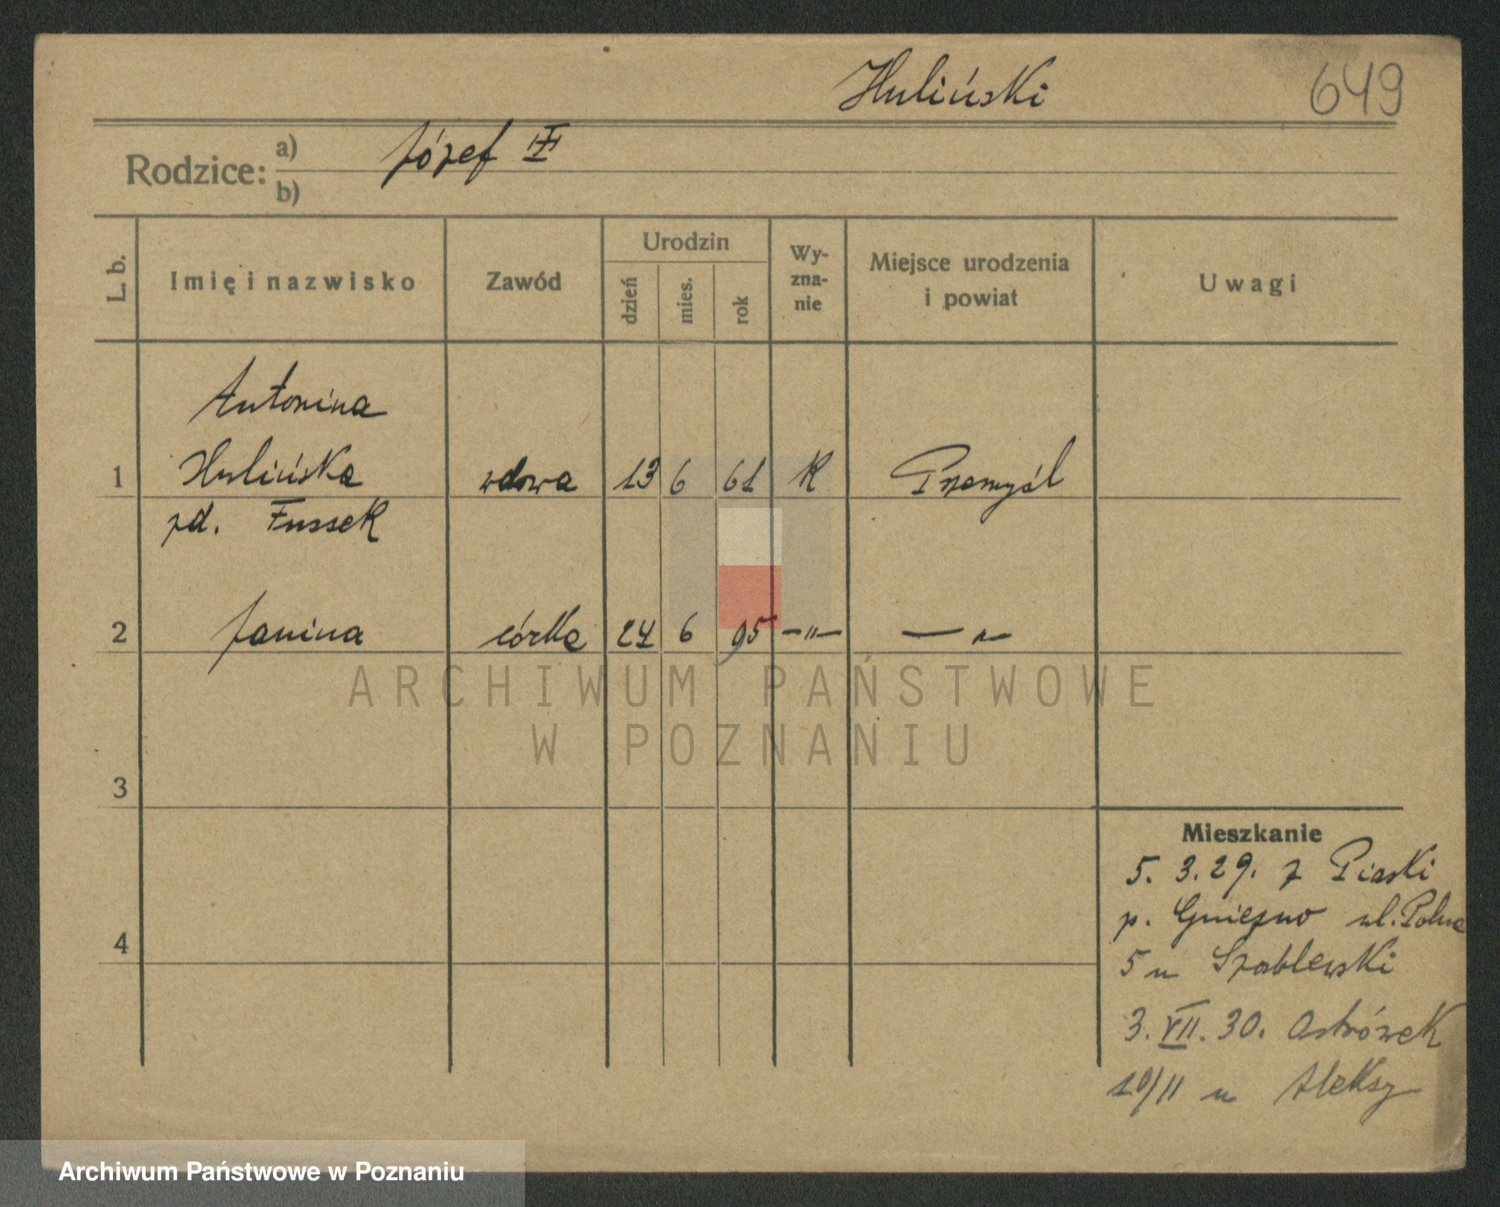 Huliński
649
Rodzice: a) Józef
b)
L. b.
Imię i nazwisko
Zawód
Urodzin
dzień
mies.
rok
Wy-
zna-
nie
Miejsce urodzenia
i powiat
Uwagi
Antonina
1 Hulińska wdowa 13 6 61 K Przemyśl
zd. Fussek
2 Janina córka 24 6 95 —"— — " —
3
4
Mieszkanie
5. 3. 29. z Piaski
p. Gniezno ul. Polna
5 u Szablewski
3. VII. 30. Ostrówek
10/11 u Aleksy
ARCHIWUM PAŃSTWOWE
W POZNANIU
Archiwum Państwowe w Poznaniu